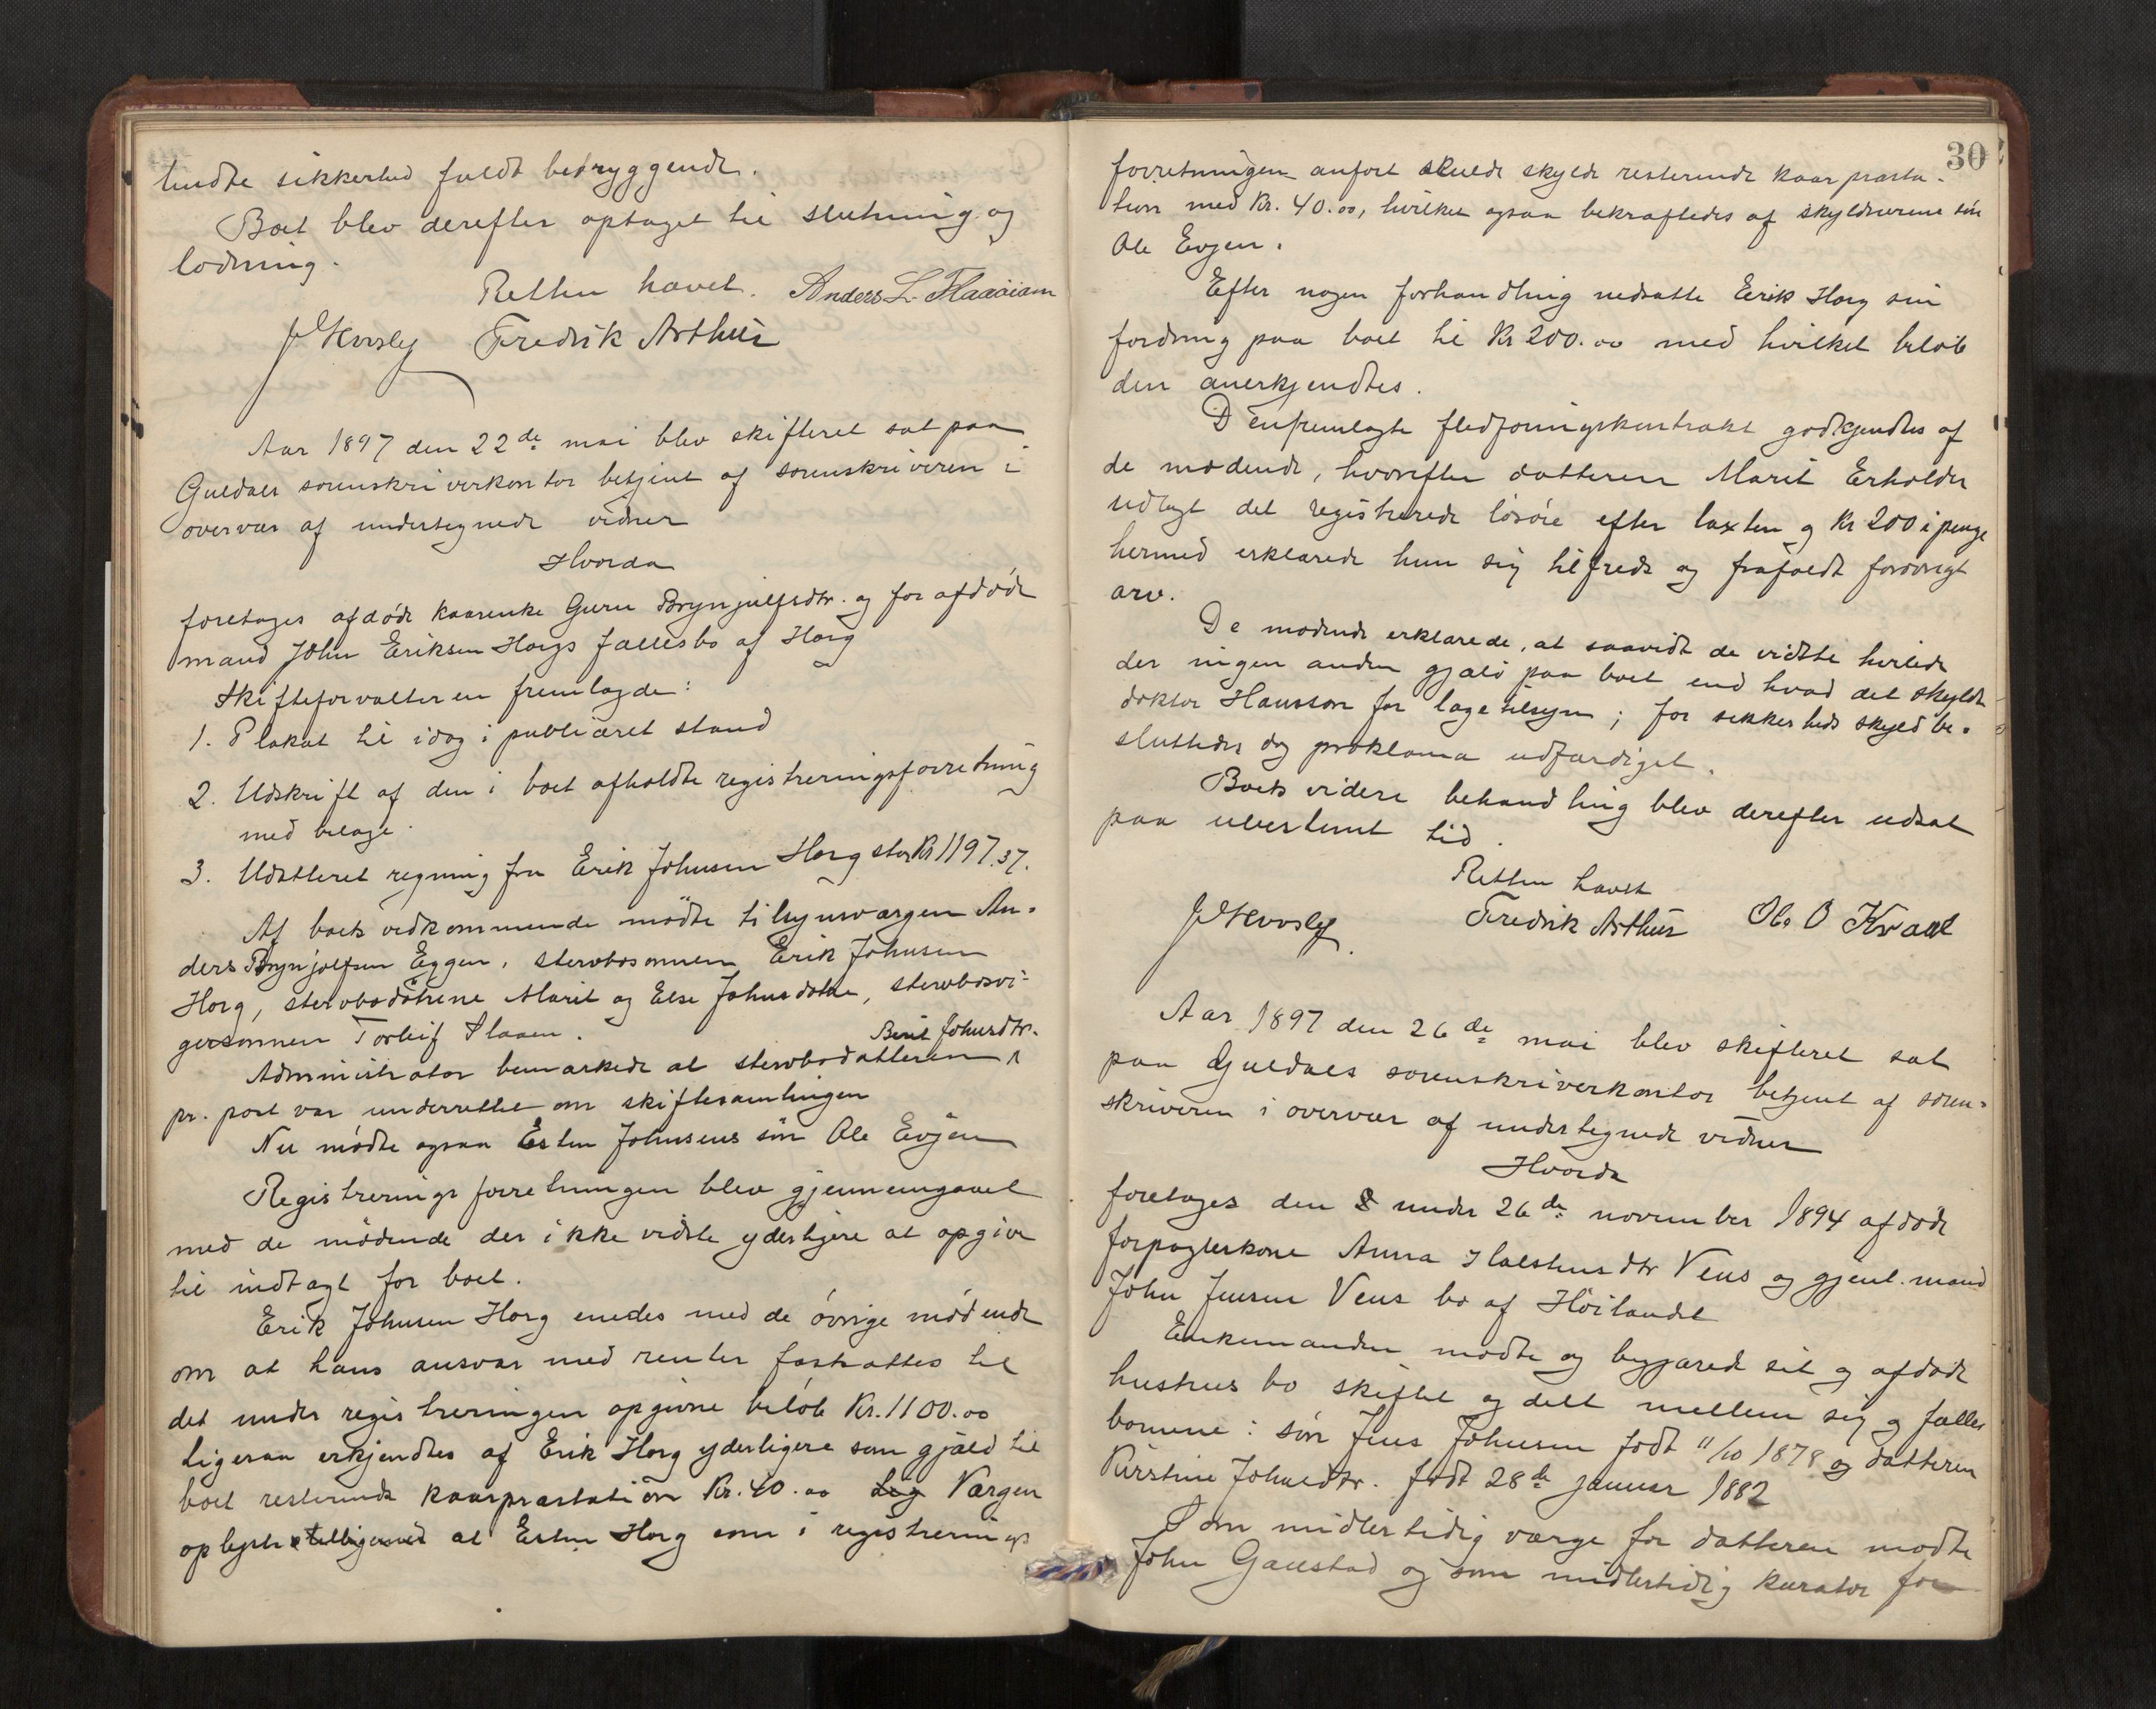 tindte sikkerhed fuldt betryggende.
Boet blev derefter optaget til slutning og
lodning.
Retten hævet. Anders L. Flaaøiam
Fredrik Arthur
Aar 1897 den 22de mai blev skifteret sat paa
Guldals sorenskriverkontor betjent af sorenskriveren i
overvær af undertegnede vidner
Hvorda
foretoges afdøde kaarenke Guru Brynjulfsdtr. og før afdøde
mand John Eriksen Horgs fællesbo af Horg
Skifteforvalteren fremlagde:
1. Plakat til idag i publiceret stand
2. Udskrift af den i boet afholdte registreringsforretning
med bilage.
3. Udatteret regning fra Erik Johnsen Horg stor Kr 1197.37.
Af boets vedkommende mødte tilsynsværgen An-
ders Brynjolfsen Eggen, stervbosønnen Erik Johnsen
Horg, stervbodøtrene Marit og Else Johnsdøtre, stervbosvi-
gersønnen Torleif Slaaen.
Administrator bemærkede at stervbodatteren Berit Johnsdtr.
pr. post var underrettet om skiftesamlingen
Nu mødte ogsaa Esten Johnsens søn Ole Evjen
Registreringsforretningen blev gjennemgaaet
med de mødende der ikke vidste yderligere at opgive
til indtægt for boet.
Erik Johnsen Horg enedes med de øvrige mødende
om at hans ansvar med renter fastsattes til
det under registreringen opgivne beløb Kr. 1100.00
ligesaa erkjendtes af Erik Horg yderligere som gjæld til
boet resterende kaarpræstation Kr. 40.00 Værgen
oplyste at Esten Horg som i registrerings
30
forretningen anført skulde skylde resterende kaarpræsta-
tion med Kr. 40.00, hvilket ogsaa bekræftedes af skyldnerens søn
Ole Evjen.
Efter nogen forhandling nedsatte Erik Horg sin
fordring paa boet til Kr 200.00 med hvilket beløb
den anerkjendtes.
Den fremlagte fledføringskontrakt godkjendtes af
de mødende, hvorefter datteren Marit Erholder
udlagt det registrerede løsøre efter taxten og Kr 200 i penge
hermed erklærede hun sig tilfreds og frafaldt forøvrigt
arv.
De mødende erklærede, at saavidt de vidste hvilede
der ingen anden gjæld paa boet end hvad det skyldte
doktor Hansson for lægetilsyn; for sikkerheds skyld be-
sluttedes dog proklama udfærdiget.
Boets videre behandling blev derefter udsat
paa ubestemt tid.
Retten hævet
Fredrik Arthur Ole O Kvaal
Aar 1897 den 26de mai blev skifteret sat
paa Guldals sorenskriverkontor betjent af soren-
skriveren i overvær af undertegnede vidner
Hvorda
foretoges den under 26de november 1894 afdøde
forpagterkone Anna Halstensdtr Vens og gjenl. mand
John Jensen Vens bo af Høilandet
Enkemanden mødte og begjærede sit og afdøde
hustrus bo skiftet og delt mellem sig og fælles
børnene: søn Jens Johnsen født 11/10 1878 og datteren
Kirstine Johnsdtr. født 28de januar 1882
Som midlertidig værge for datteren mødte
John Gaustad og som midlertidig kurator for